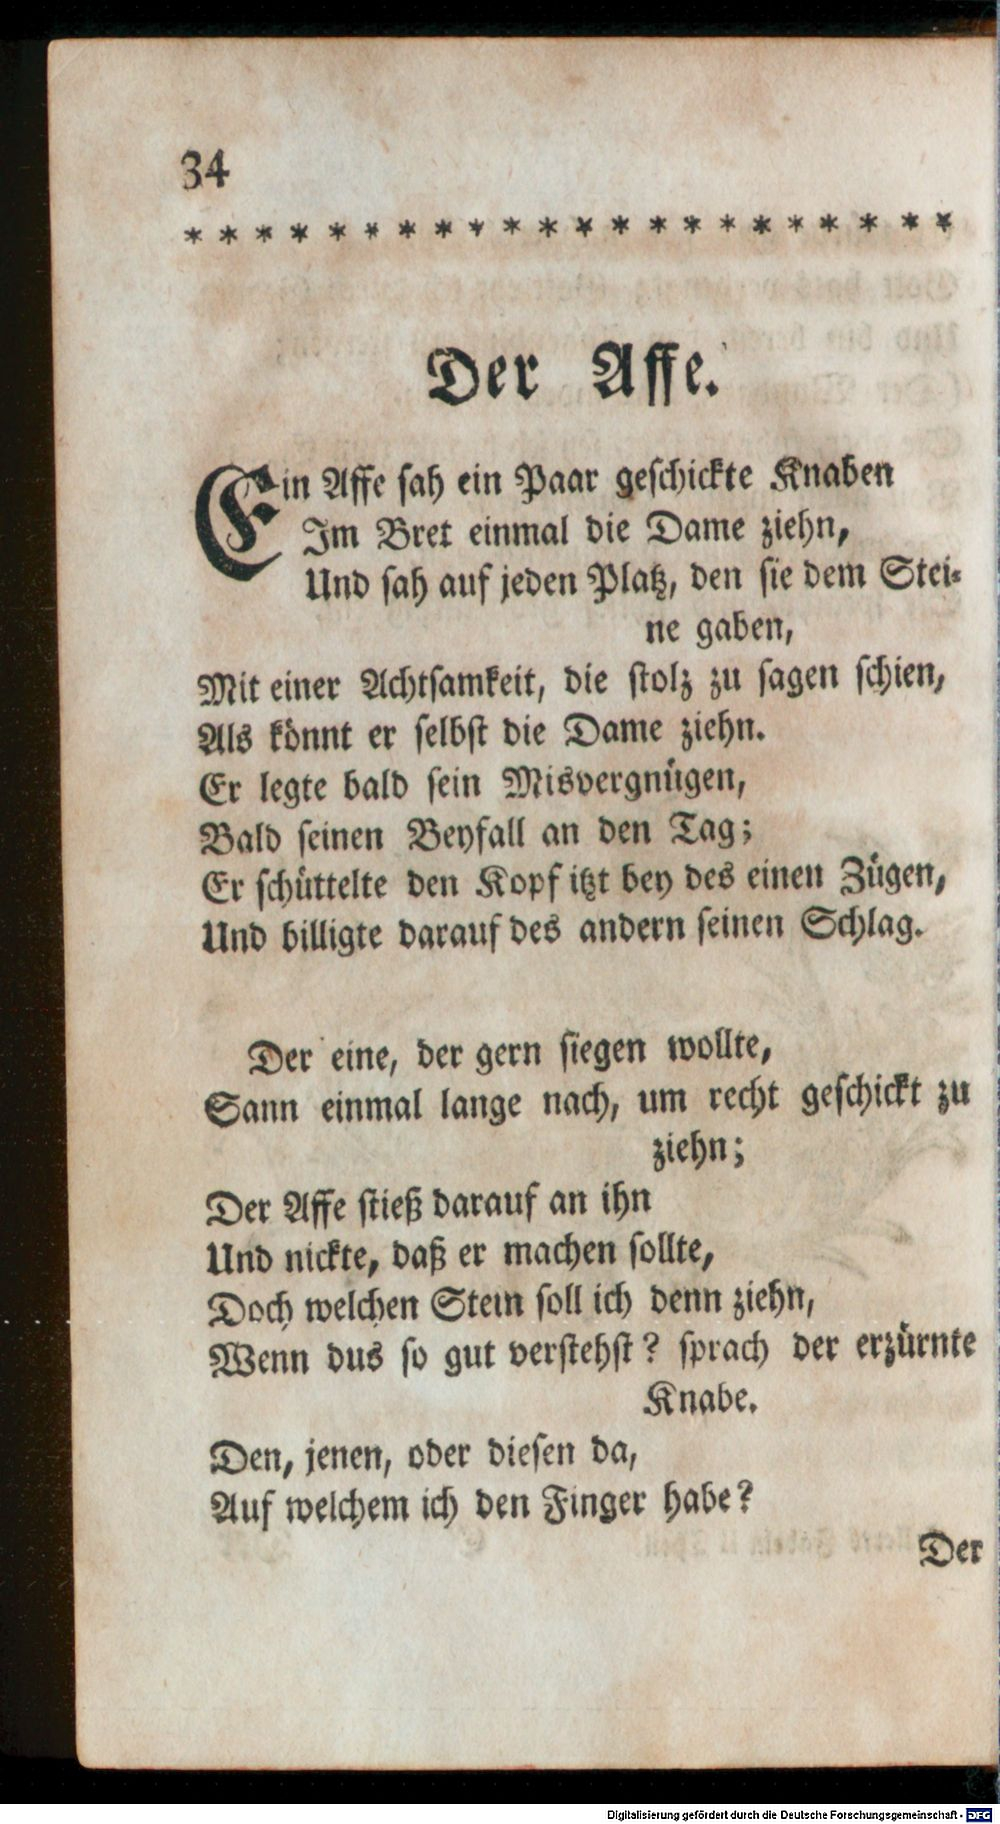 34
* * * * * * * * * * * * * * * * * * * * * *
Der Affe.
Ein Affe sah ein Paar geschickte Knaben
Im Bret einmal die Dame ziehn,
Und sah auf jeden Platz, den sie dem Stei-
ne gaben,
Mit einer Achtsamkeit, die stolz zu sagen schien,
Als könnt er selbst die Dame ziehn.
Er legte bald sein Misvergnügen,
Bald seinen Beyfall an den Tag;
Er schüttelte den Kopf itzt bey des einen Zügen,
Und billigte darauf des andern seinen Schlag.
Der eine, der gern siegen wollte,
Sann einmal lange nach, um recht geschickt zu
ziehn;
Der Affe stieß darauf an ihn
Und nickte, daß er machen sollte,
Doch welchen Stein soll ich denn ziehn,
Wenn dus so gut verstehst? sprach der erzürnte
Knabe.
Den, jenen, oder diesen da,
Auf welchem ich den Finger habe?
Der
Digitalisierung gefördert durch die Deutsche Forschungsgemeinschaft - DFG